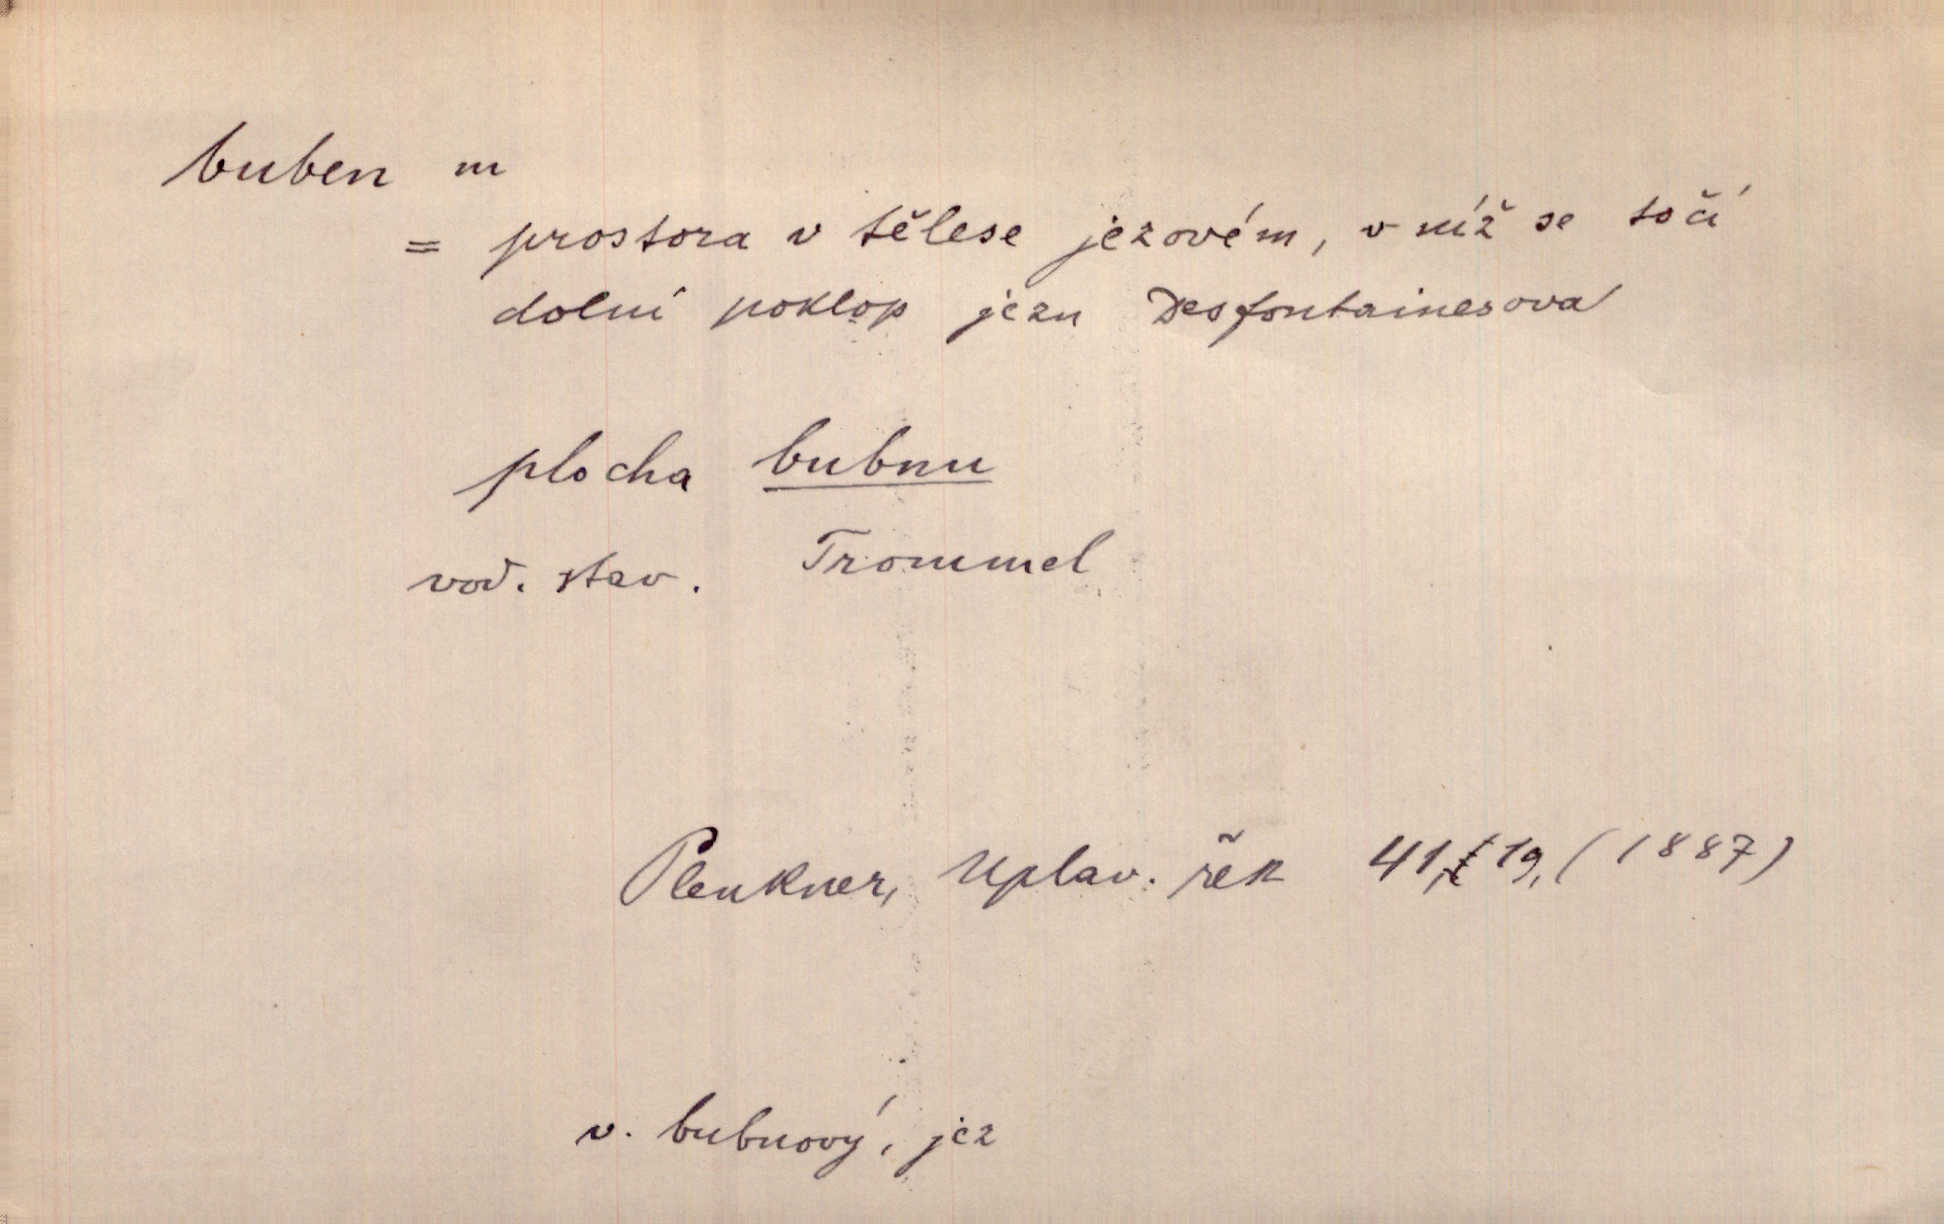 buben m
= prostora v tělese jezovém, v níž se točí
dolní poklop jezu Desfontainesova
plocha bubnu
vod. stav. Trommel
Plenkner, Uplav. řek 41, 19, (1887)
v. bubnový, jez